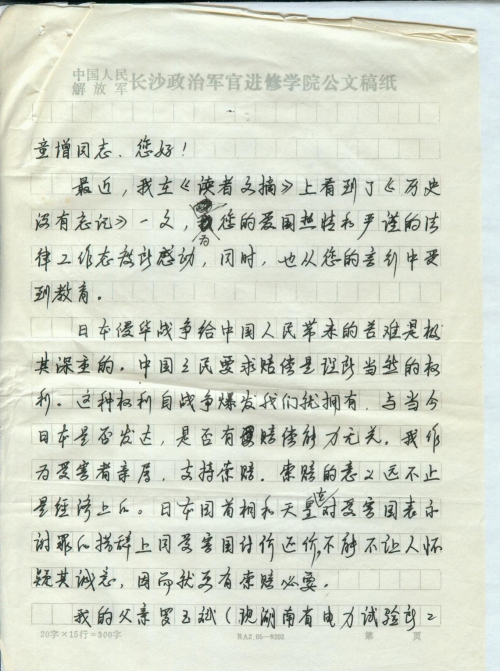 中国人民
解放军 长沙政治军官进修学院公文稿纸
童增同志、您好！
最近，我在《读者文摘》上看到了《历史
没有忘记》一文，为您的爱国热情和严谨的法
律工作态度所感动，同时，也从您的言行中受
到教育。
日本侵华战争给中国人民带来的苦难是极
其深重的。中国人民要求赔偿是理所当然的权
利。这种权利自战争爆发我们就拥有，与当今
日本是否发达，是否有赔偿能力无关。我作
为受害者亲属，支持索赔。索赔的意义远不止
是经济上的。日本国首相和天皇连对受害国表示
谢罪的措辞上同受害国讨价还价，不能不让人怀
疑其诚意，因而就更有索赔必要。
我的父亲罗玉斌（现湖南省电力试验所工
20字×15行=300字
第 页